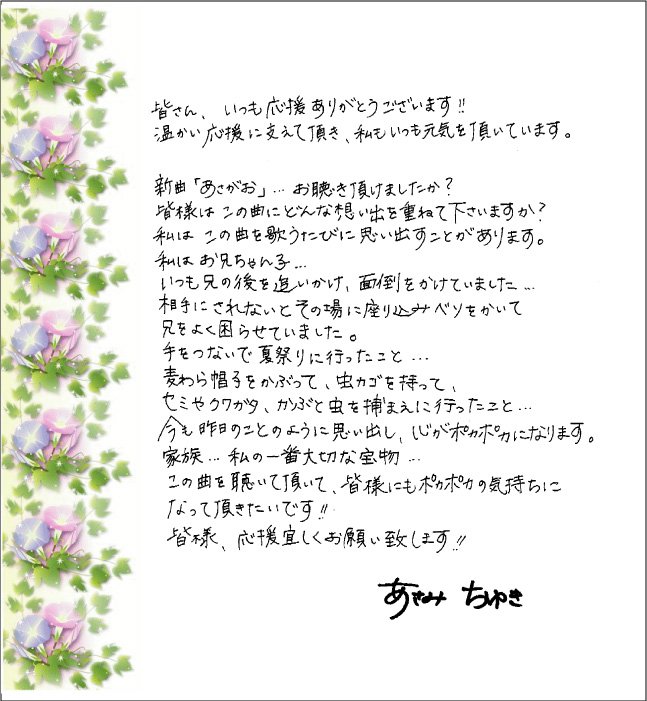 皆さん、いつも応援ありがとうございます!!
温かい応援に支えて頂き、私もいつも元気を頂いています。
新曲「あさがお」… お聴き頂けましたか?
皆様は この曲にどんな想い出を重ねて下さいますか?
私は この曲を歌うたびに思い出すことがあります。
私は お兄ちゃん子…
いつも兄の後を追いかけ、面倒をかけていました…
相手にされないとその場に座り込みベソをかいて
兄をよく困らせていました。
手をつないで夏祭りに行ったこと…
麦わら帽子をかぶって、虫カゴを持って、
セミやクワガタ、カンぶと虫を捕まえに行ったこと…
今も昨日のことのように思い出し、心がポカポカになります。
家族… 私の一番大切な宝物…
この曲を聴いて頂いて、皆様にもポカポカの気持ちに
なって頂きたいです!!
皆様、応援宜しくお願い致します!!
あさみ ちゆき